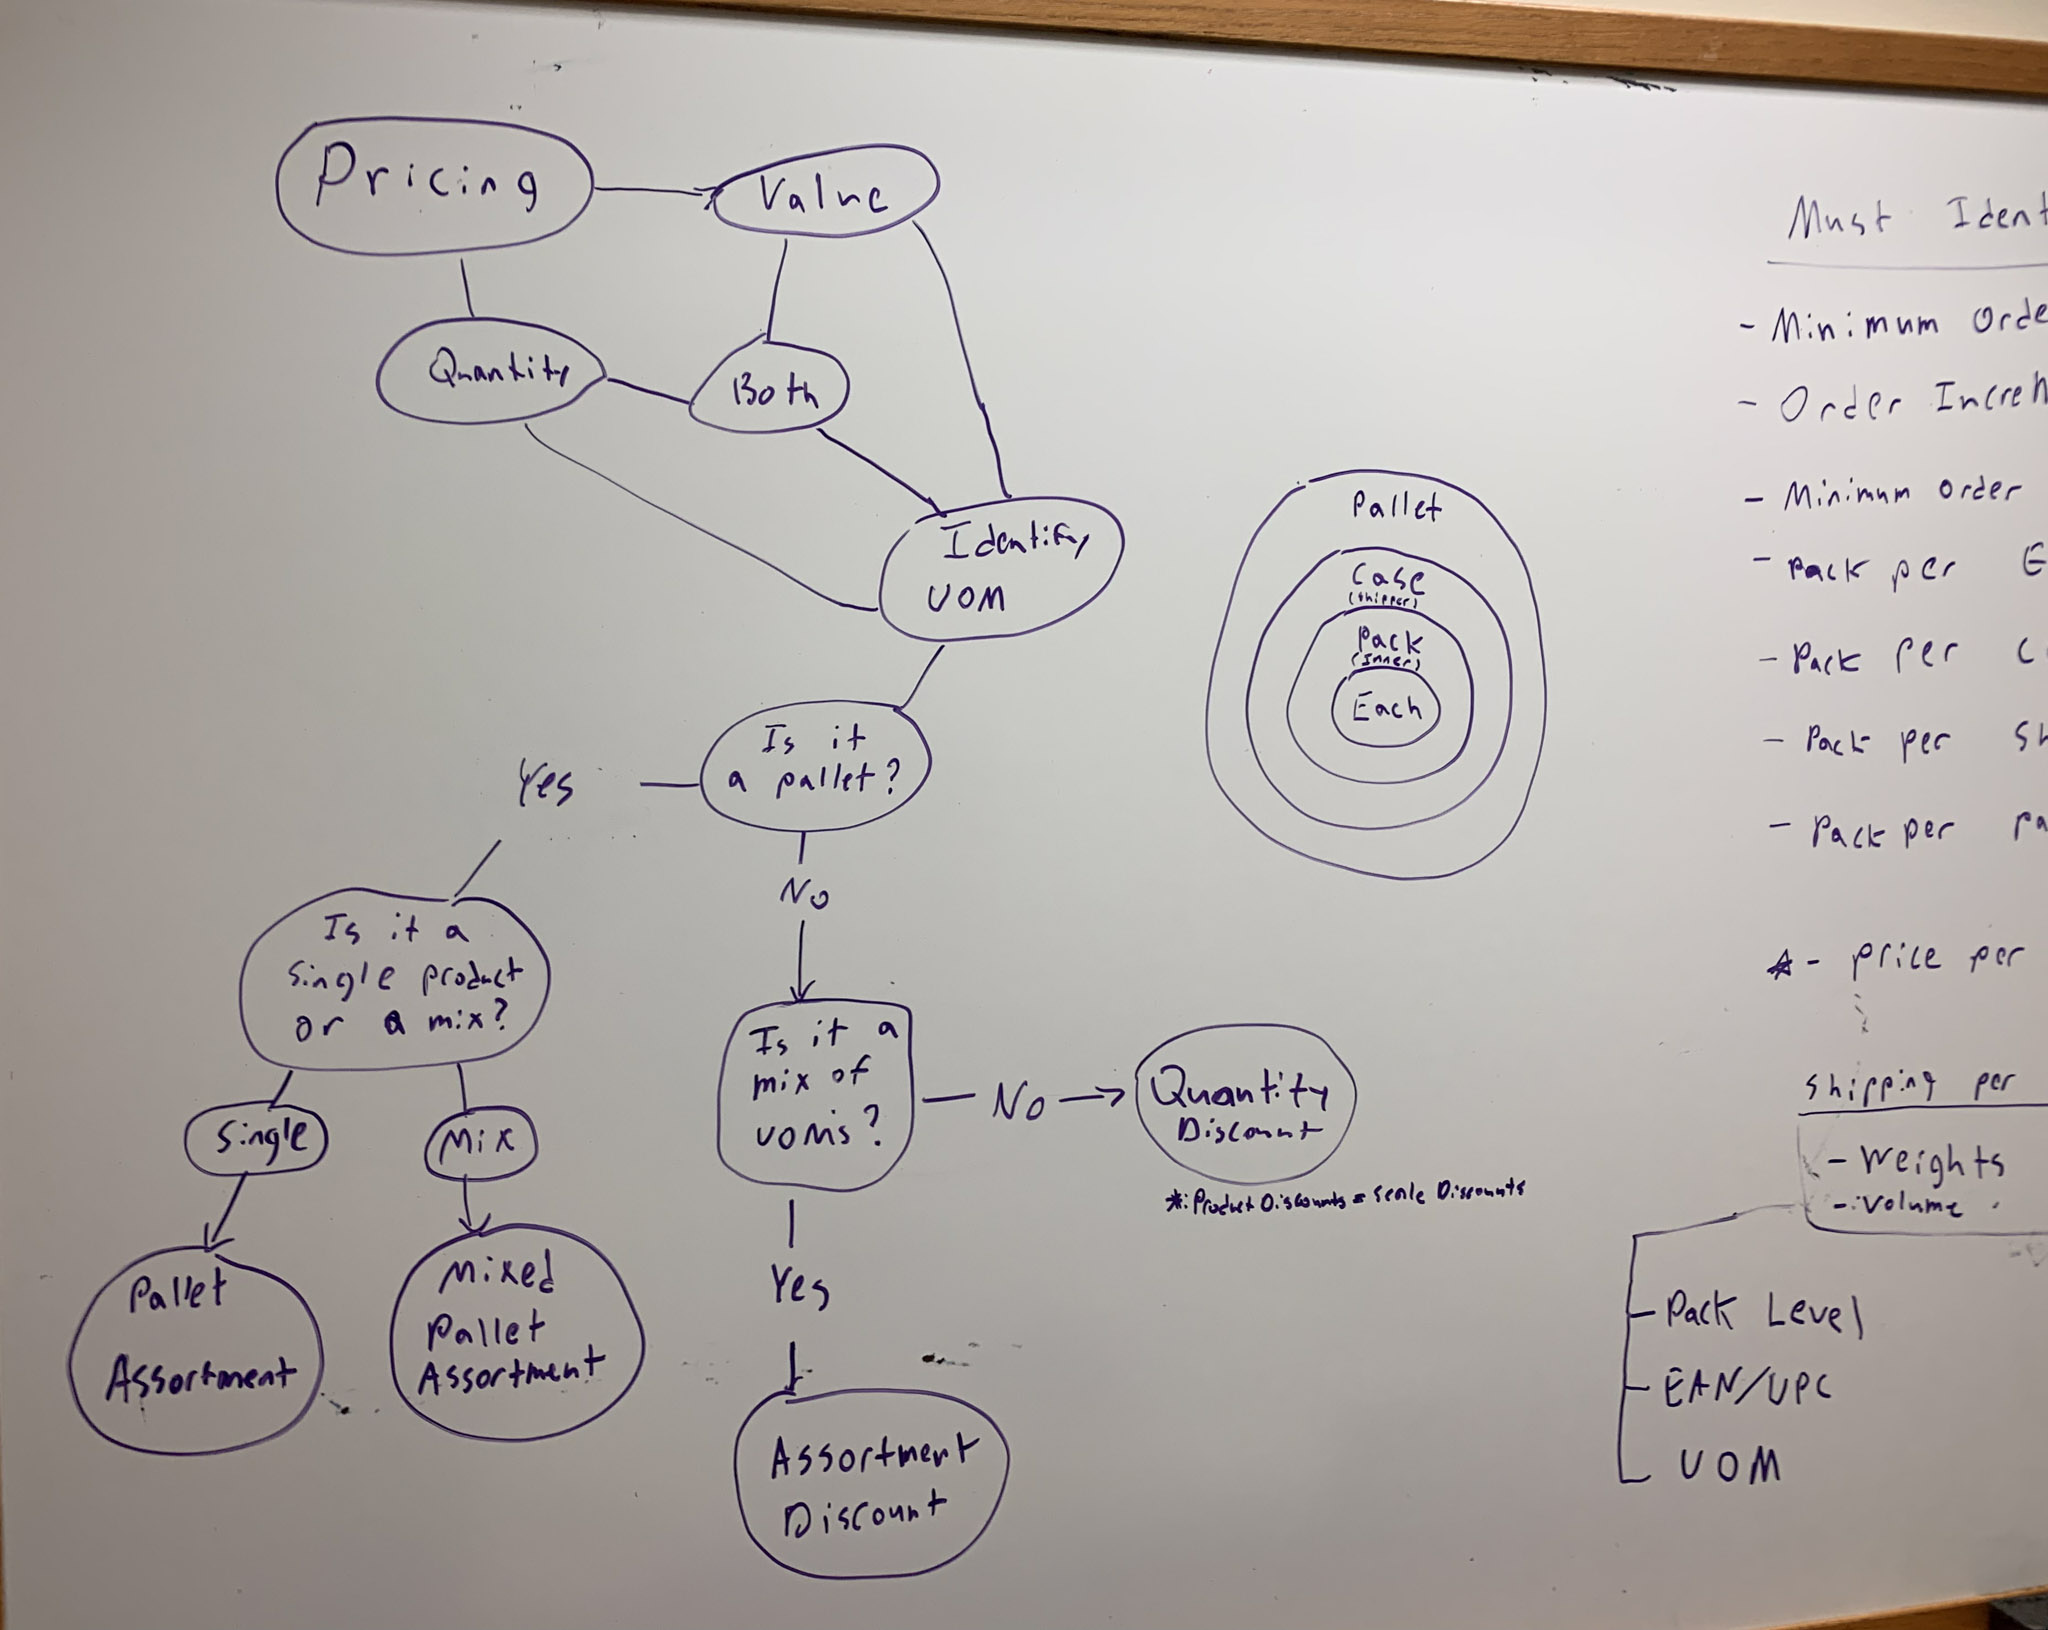 Pricing
Value
Quantity
Both
Identify
UOM
Is it
a pallet?
Yes
No
Is it a
single product
or a mix?
Single
Mix
Pallet
Assortment
Mixed
Pallet
Assortment
Is it a
mix of
UOMs?
No
Quantity
Discount
*: Product Discounts = Scale Discounts
Yes
Assortment
Discount
Pallet
Case
(shipper)
Pack
(Inner)
Each
Must Ident
- Minimum Orde
- Order Increm
- Minimum Order
- Pack per E
- Pack per C
- Pack per Sh
- Pack per pa
☆ - Price per
Shipping per
- Weights
- Volume
Pack Level
EAN/UPC
UOM